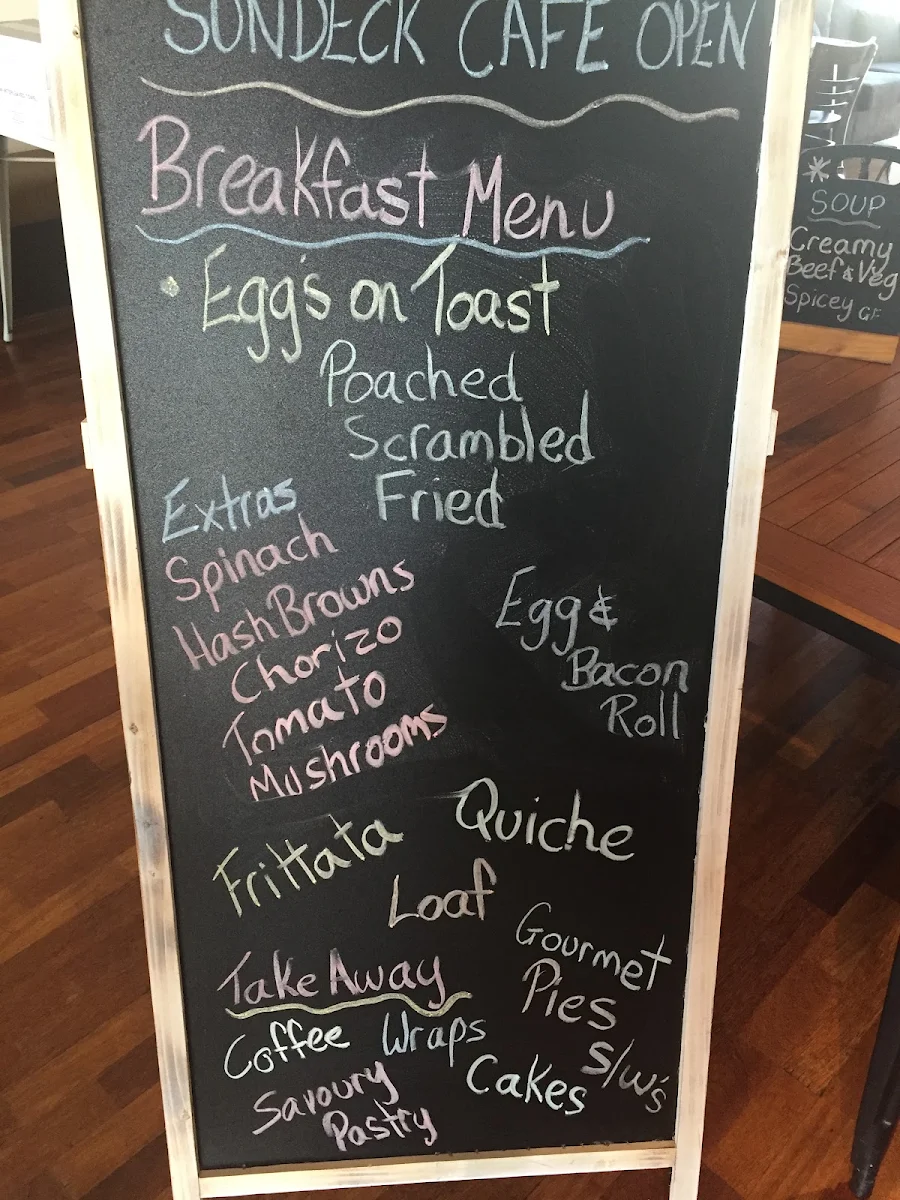 SUNDECK CAFE OPEN
Breakfast Menu
• Egg's on Toast
Poached
Scrambled
Fried
Extras
Spinach
Hash Browns
Chorizo
Tomato
Mushrooms
Egg &
Bacon
Roll
Frittata
Quiche
Loaf
Gourmet
Pies
Take Away
Coffee
Wraps
S/W's
Cakes
Savoury
Pastry
* SOUP
Creamy
Beef & Veg
Spicey GF